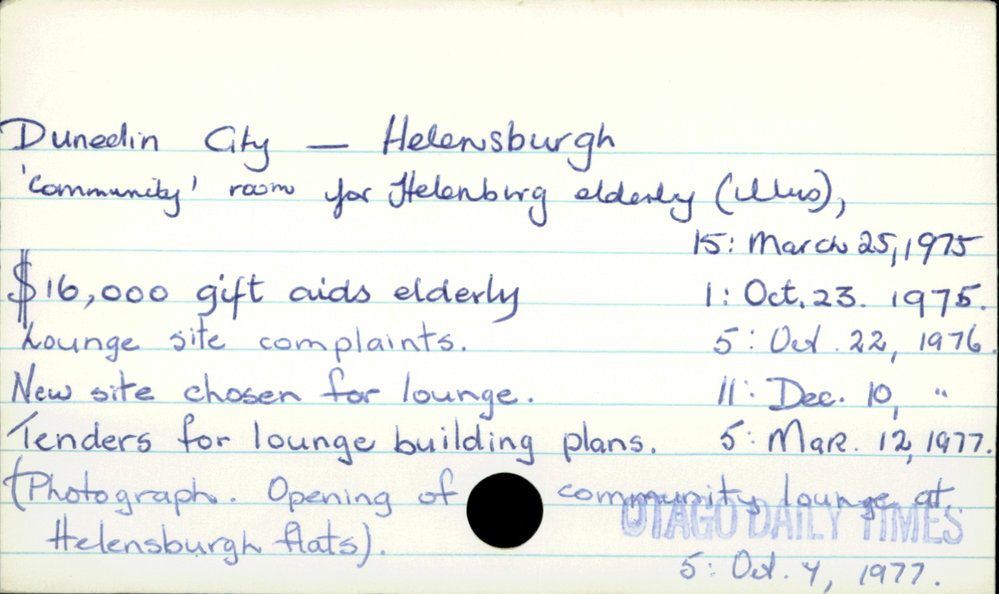 Dunedin City — Helensburgh
'Community' room for Helenburg elderly (illus),
15: March 25, 1975
$16,000 gift aids elderly 1: Oct. 23. 1975.
Lounge site complaints. 5: Oct. 22, 1976.
New site chosen for lounge. 11: Dec. 10, "
Tenders for lounge building plans. 5: Mar. 12, 1977.
(Photograph. Opening of community lounge at
OTAGO DAILY TIMES
Helensburgh flats).
5: Oct. 4, 1977.